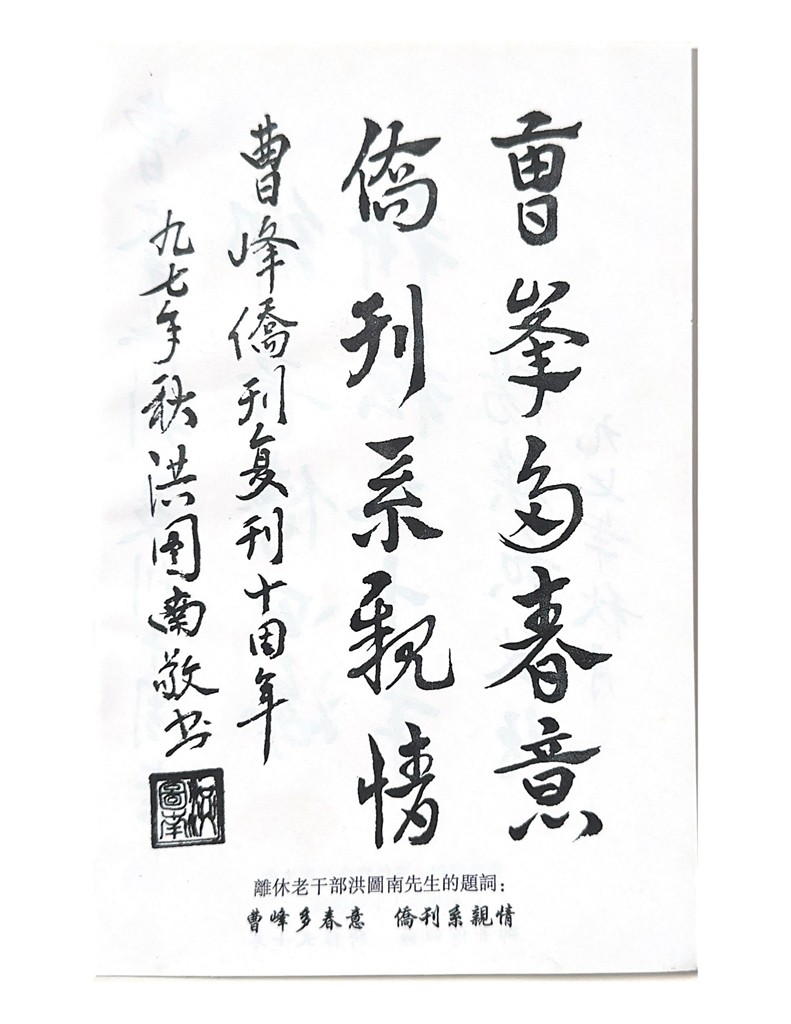 曹峯多春意
僑刊系親情
曹峰僑刊复刊十周年
九七年秋洪图南敬书
洪圖南
離休老干部洪圖南先生的題詞：
曹峰多春意 僑刊系親情